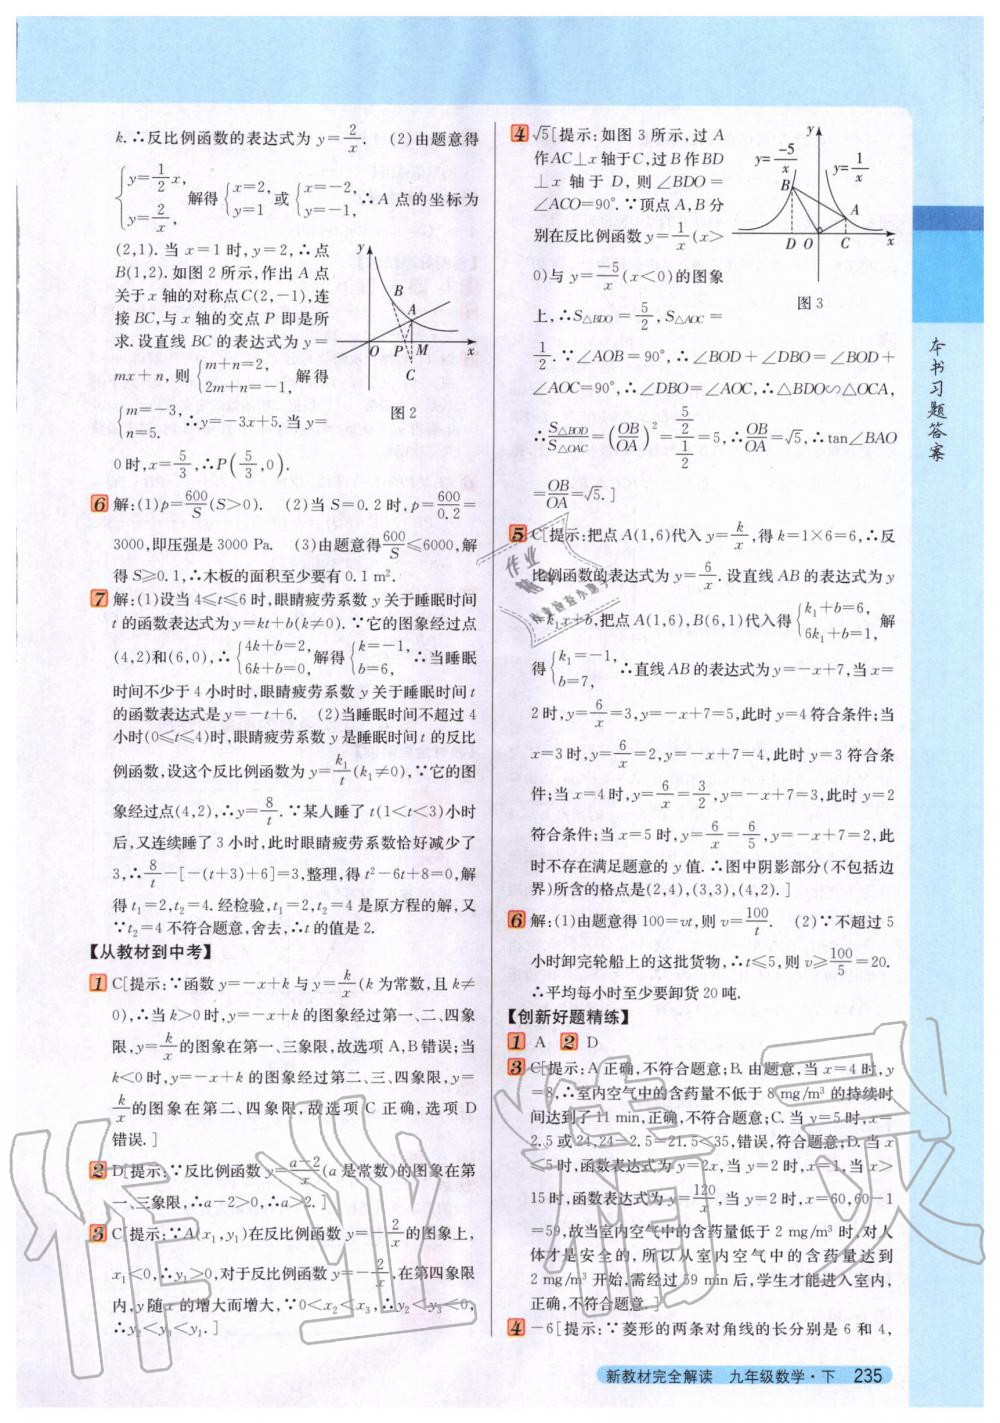 k.∴反比例函数的表达式为y=2/x. (2)由题意得
{y=1/2 x, y=2/x, 解得{x=2, y=1 或{x=-2, y=-1, ∴A点的坐标为
(2,1).当x=1时,y=2,∴点
B(1,2).如图2所示,作出A点
关于x轴的对称点C(2,-1),连
接BC,与x轴的交点P即是所
求.设直线BC的表达式为y=
mx+n,则{m+n=2, 2m+n=-1, 解得
{m=-3, n=5. ∴y=-3x+5,当y=
0时,x=5/3,∴P(5/3,0).
y
B
A
O
P
M
x
C
图2
6 解:(1)p=600/S(S>0). (2)当S=0.2时,p=600/0.2=
3000,即压强是3000 Pa. (3)由题意得600/S≤6000,解
得S≥0.1,∴木板的面积至少要有0.1 m².
7 解:(1)设当4≤t≤6时,眼睛疲劳系数y关于睡眠时间
t的函数表达式为y=kt+b(k≠0).∵它的图象经过点
(4,2)和(6,0),∴{4k+b=2, 6k+b=0, 解得{k=-1, b=6, ∴当睡眠
时间不少于4小时时,眼睛疲劳系数y关于睡眠时间t
的函数表达式是y=-t+6. (2)当睡眠时间不超过4
小时(0≤t≤4)时,眼睛疲劳系数y是睡眠时间t的反比
例函数,设这个反比例函数为y=k₁/t(k₁≠0),∵它的图
象经过点(4,2),∴y=8/t.∵某人睡了t(1<t<3)小时
后,又连续睡了3小时,此时眼睛疲劳系数恰好减少了
3,∴8/t-[-(t+3)+6]=3,整理,得t²-6t+8=0,解
得t₁=2,t₂=4.经检验,t₁=2,t₂=4是原方程的解,又
∵t₂=4不符合题意,舍去,∴t的值是2.
【从教材到中考】
1 C[提示:∵函数y=-x+k与y=k/x(k为常数,且k≠
0),∴当k>0时,y=-x+k的图象经过第一、二、四象
限,y=k/x的图象在第一、三象限,故选项A,B错误;当
k<0时,y=-x+k的图象经过第二、三、四象限,y=
k/x的图象在第二、四象限,故选项C正确,选项D
错误.]
2 D[提示:∵反比例函数y=a-2/x(a是常数)的图象在第
一、三象限,∴a-2>0,∴a>2.]
3 C[提示:∵A(x₁,y₁)在反比例函数y=-2/x的图象上,
x₁<0,∴y₁>0,对于反比例函数y=-2/x,在第四象限
内,y随x的增大而增大,∵0<x₂<x₃,∴y₂<y₃<0,
∴y₂<y₃<y₁.]
4 √5[提示:如图3所示,过A
作AC⊥x轴于C,过B作BD
⊥x轴于D,则∠BDO=
∠ACO=90°.∵顶点A,B分
别在反比例函数y=1/x(x>
0)与y=-5/x(x<0)的图象
上,∴S△BDO=5/2,S△AOC=
1/2.∵∠AOB=90°,∴∠BOD+∠DBO=∠BOD+
∠AOC=90°,∴∠DBO=∠AOC,∴△BDO∽△OCA,
∴S△BOD/S△OAC=(OB/OA)²=5/2/1/2=5,∴OB/OA=√5,∴tan∠BAO
=OB/OA=√5.]
y
y=-5/x
y=1/x
B
A
D
O
C
x
图3
5 C[提示:把点A(1,6)代入y=k/x,得k=1×6=6,∴反
比例函数的表达式为y=6/x.设直线AB的表达式为y
=k₁x+b,把点A(1,6),B(6,1)代入得{k₁+b=6, 6k₁+b=1, 解
得{k₁=-1, b=7, ∴直线AB的表达式为y=-x+7,当x=
2时,y=6/x=3,y=-x+7=5,此时y=4符合条件;当
x=3时,y=6/x=2,y=-x+7=4,此时y=3符合条
件;当x=4时,y=6/x=3/2,y=-x+7=3,此时y=2
符合条件;当x=5时,y=6/x=6/5,y=-x+7=2,此
时不存在满足题意的y值.∴图中阴影部分(不包括边
界)所含的格点是(2,4),(3,3),(4,2).]
6 解:(1)由题意得100=vt,则v=100/t. (2)∵不超过5
小时卸完轮船上的这批货物,∴t≤5,则v≥100/5=20.
∴平均每小时至少要卸货20吨.
【创新好题精练】
1 A 2 D
3 C[提示:A.正确,不符合题意;B.由题意,当x=4时,y
=8,∴室内空气中的含药量不低于8 mg/m³的持续时
间达到了11 min,正确,不符合题意;C.当y=5时,x=
2.5或24,24-2.5=21.5<35,错误,符合题意;D.当x
≤5时,函数表达式为y=2x,当y=2时,x=1,当x>
15时,函数表达式为y=120/x,当y=2时,x=60,60-1
=59,故当室内空气中的含药量不低于2 mg/m³时,对人
体才是安全的,所以从室内空气中的含药量达到
2 mg/m³开始,需经过59 min后,学生才能进入室内,
正确,不符合题意.]
4 -6[提示:∵菱形的两条对角线的长分别是6和4,
本书习题答案
新教材完全解读 九年级数学·下 235
作业精灵